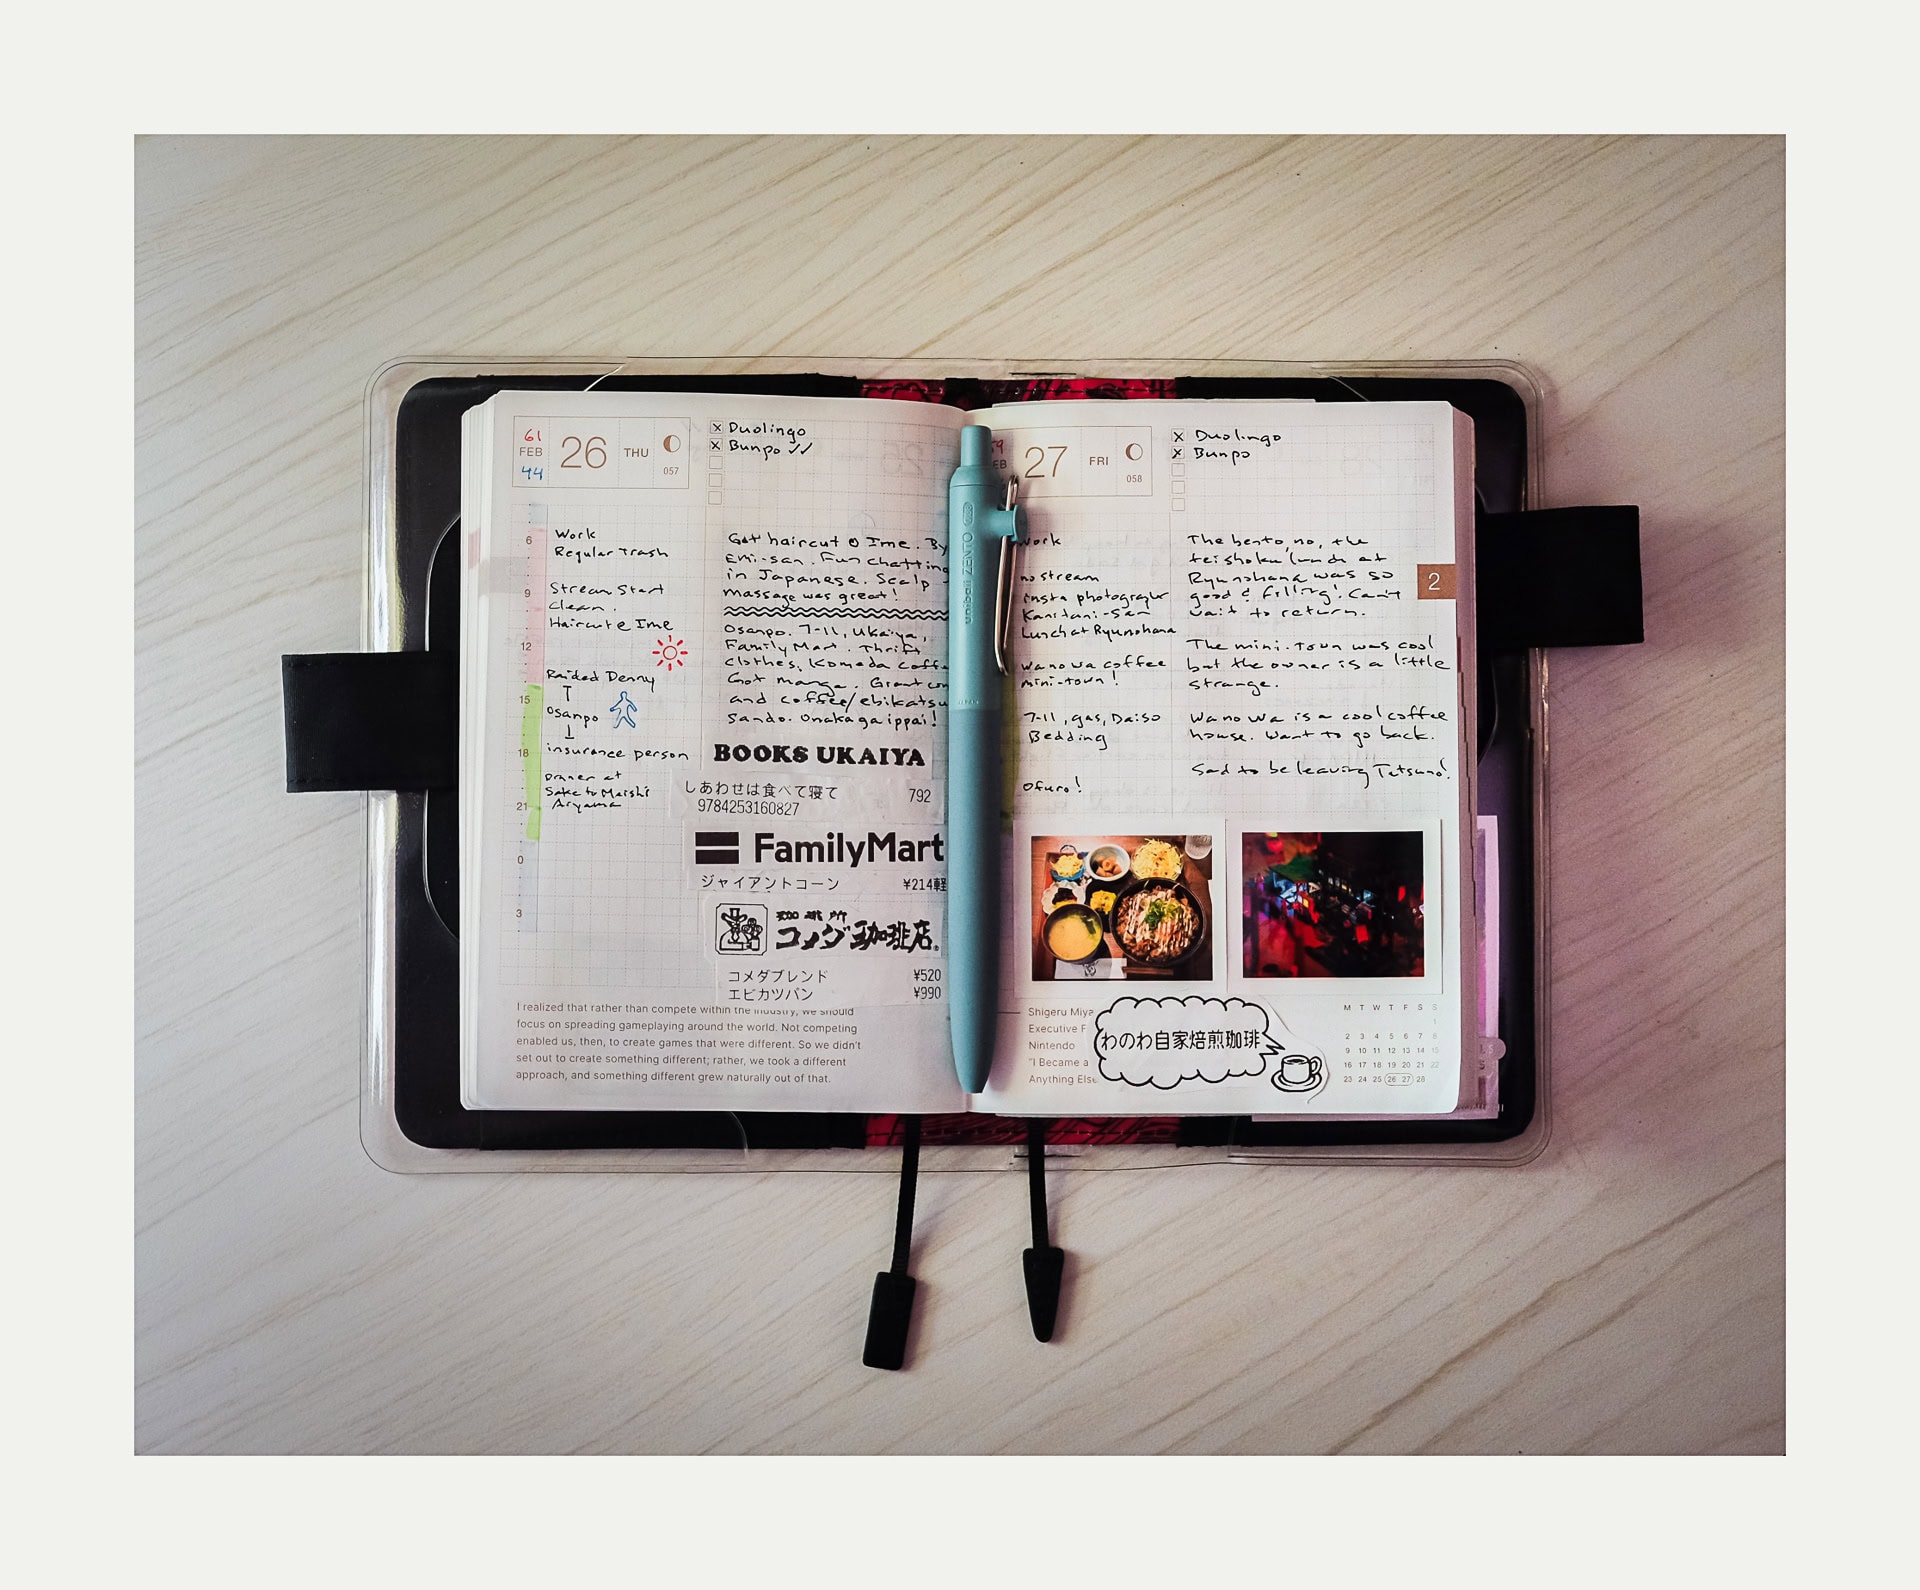 61
FEB
44
26
THU
057
x Duolingo
x Bunpo ✓✓
6
9
12
15
18
21
0
3
Work
Regular trash
Stream Start
Clean.
Haircut @ Ime
Raided Denny
Osanpo
insurance person
Dinner at
Sake to Meishi
Ariyama
Got haircut @ Ime. By
Emi-san. Fun chatting
in Japanese. Scalp
massage was great!
Osanpo. 7-11, Ukaiya,
Family Mart. Thrift
clothes, Komeda coffe
Got manga. Giant con
and coffee/ebikatsu
Sando. Onaka ga ippai!
BOOKS UKAIYA
しあわせは食べて寝て 792
9784253160827
FamilyMart
ジャイアントコーン ¥214軽
珈琲所
コメダ珈琲店
コメダブレンド ¥520
エビカツパン ¥990
I realized that rather than compete within the industry, we should
focus on spreading gameplaying around the world. Not competing
enabled us, then, to create games that were different. So we didn't
set out to create something different; rather, we took a different
approach, and something different grew naturally out of that.
uniball ZENTO
JAPAN
59
EB
27
FRI
058
x Duolingo
x Bunpo
work
no stream
insta photographer
Kanitani-San
Lunch at Ryunohana
wanowa coffee
mini-town!
7-11, gas, Daiso
Bedding
Ofuro!
The bento, no, the
teishoku lunch at
Ryunohana was so
good & filling! Can't
wait to return.
The mini-town was cool
but the owner is a little
strange.
Wanowa is a cool coffee
house. Want to go back.
Sad to be leaving Tatsuno!
2
Shigeru Miya
Executive F
Nintendo
"I Became a
Anything Else
わのわ自家焙煎珈琲
M T W T F S S
1
2 3 4 5 6 7 8
9 10 11 12 13 14 15
16 17 18 19 20 21 22
23 24 25 26 27 28